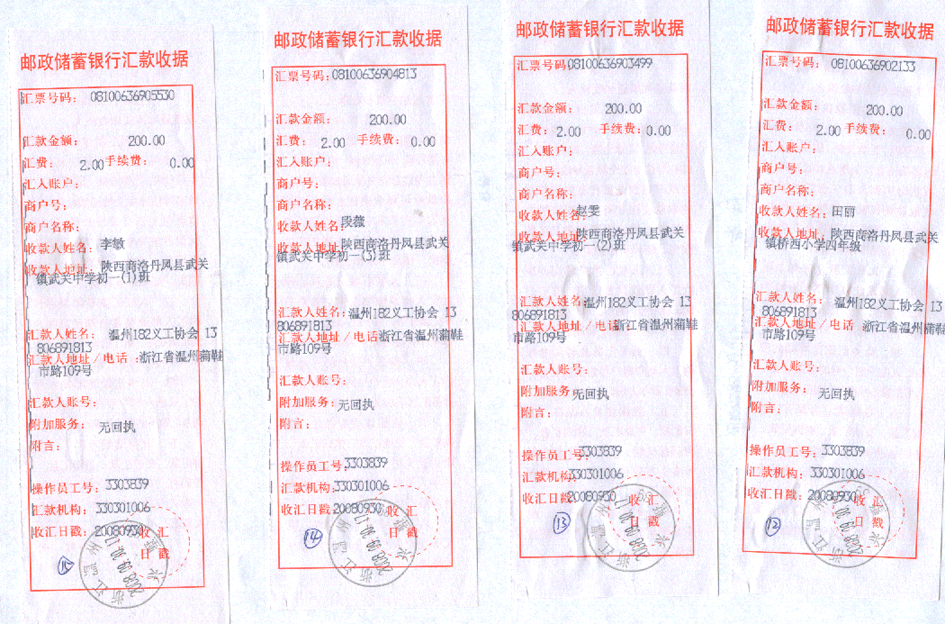 邮政储蓄银行汇款收据
汇票号码: 08100636905530
汇款金额: 200.00
汇费: 2.00 手续费: 0.00
汇入账户:
商户号:
商户名称:
收款人姓名: 李敏
收款人地址: 陕西商洛丹凤县武关
镇武关中学初一(1)班
汇款人姓名: 温州182义工协会 13
806891813
汇款人地址/电话:浙江省温州蒲鞋
市路109号
汇款人账号:
附加服务: 无回执
附言:
操作员工号: 3303839
汇款机构: 330301006
收汇日戳: 20080930
收汇
日戳
邮政储蓄银行汇款收据
汇票号码: 08100636904813
汇款金额: 200.00
汇费: 2.00 手续费: 0.00
汇入账户:
商户号:
商户名称:
收款人姓名: 段薇
收款人地址: 陕西商洛丹凤县武关
镇武关中学初一(3)班
汇款人姓名: 温州182义工协会 13
806891813
汇款人地址/电话:浙江省温州蒲鞋
市路109号
汇款人账号:
附加服务: 无回执
附言:
操作员工号: 3303839
汇款机构: 330301006
收汇日戳: 20080930
收汇
日戳
⑭
邮政储蓄银行汇款收据
汇票号码: 08100636903499
汇款金额: 200.00
汇费: 2.00 手续费: 0.00
汇入账户:
商户号:
商户名称:
收款人姓名: 赵雯
收款人地址: 陕西商洛丹凤县武关
镇武关中学初一(2)班
汇款人姓名: 温州182义工协会 13
806891813
汇款人地址/电话:浙江省温州蒲鞋
市路109号
汇款人账号:
附加服务: 无回执
附言:
操作员工号: 3303839
汇款机构: 330301006
收汇日戳: 20080930
收汇
日戳
⑬
邮政储蓄银行汇款收据
汇票号码: 08100636902133
汇款金额: 200.00
汇费: 2.00 手续费: 0.00
汇入账户:
商户号:
商户名称:
收款人姓名: 田丽
收款人地址: 陕西商洛丹凤县武关
镇桥西小学四年级
汇款人姓名: 温州182义工协会 13
806891813
汇款人地址/电话:浙江省温州蒲鞋
市路109号
汇款人账号:
附加服务: 无回执
附言:
操作员工号: 3303839
汇款机构: 330301006
收汇日戳: 20080930
收汇
日戳
⑫